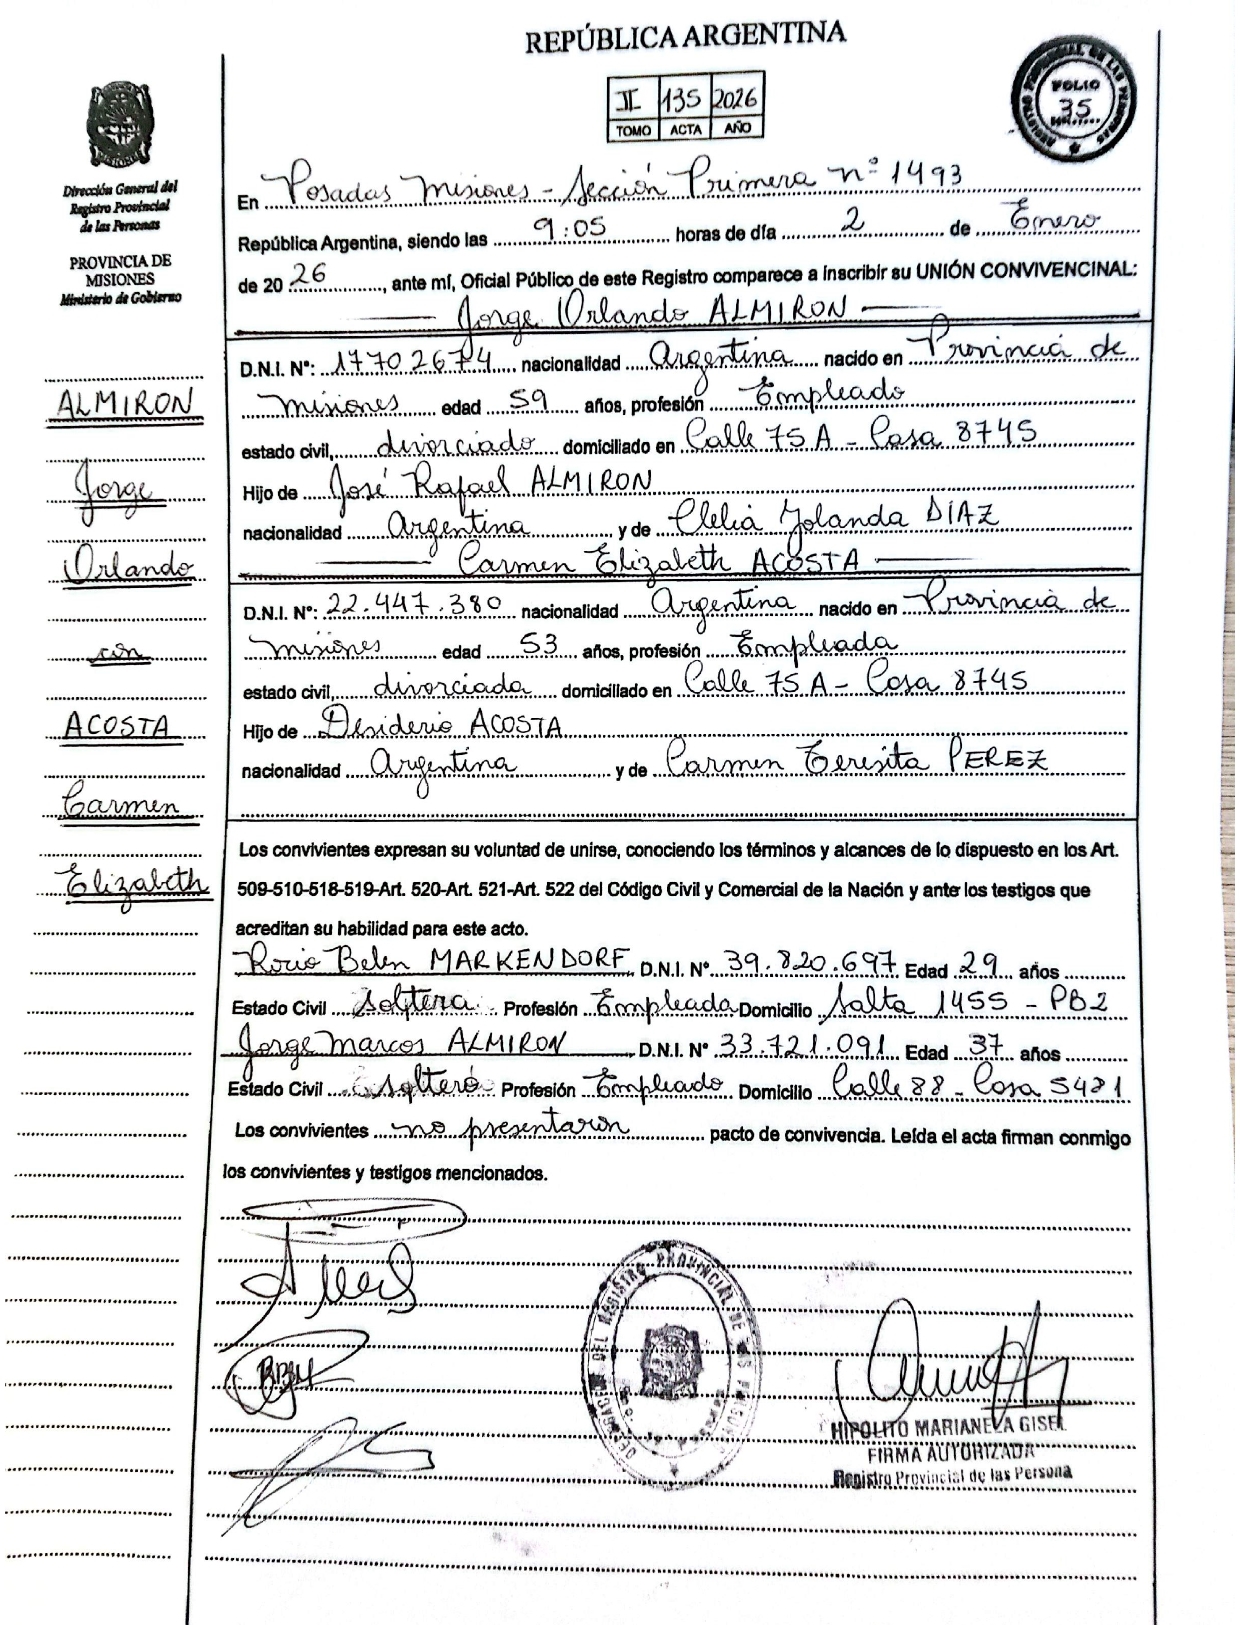 REPÚBLICA ARGENTINA
II 135 2026
TOMO ACTA AÑO
REGISTRO PROVINCIAL DE LAS PERSONAS
FOLIO
35
Dirección General del
Registro Provincial
de las Personas
PROVINCIA DE
MISIONES
Ministerio de Gobierno
En Posadas Misiones - Sección Primera nº 1493
República Argentina, siendo las 9:05 horas de día 2 de Enero
de 2026, ante mí, Oficial Público de este Registro comparece a inscribir su UNIÓN CONVIVENCINAL:
Jorge Orlando ALMIRON
D.N.I. Nº: 17702674 nacionalidad Argentina nacido en Provincia de
Misiones edad 59 años, profesión Empleado
estado civil, divorciado domiciliado en Calle 75 A - Casa 8745
Hijo de José Rafael ALMIRON
nacionalidad Argentina y de Clelia Yolanda DIAZ
Carmen Elizabeth ACOSTA
D.N.I. Nº: 22.447.380 nacionalidad Argentina nacido en Provincia de
Misiones edad 53 años, profesión Empleada
estado civil, divorciada domiciliado en Calle 75 A - Casa 8745
Hijo de Desiderio ACOSTA
nacionalidad Argentina y de Carmen Teresita PEREZ
ALMIRON
Jorge
Orlando
con
ACOSTA
Carmen
Elizabeth
Los convivientes expresan su voluntad de unirse, conociendo los términos y alcances de lo dispuesto en los Art.
509-510-518-519-Art. 520-Art. 521-Art. 522 del Código Civil y Comercial de la Nación y ante los testigos que
acreditan su habilidad para este acto.
Rocio Belen MARKENDORF D.N.I. Nº 39.820.697 Edad 29 años
Estado Civil soltera Profesión Empleada Domicilio Salta 1455 - PB2
Jorge Marcos ALMIRON D.N.I. Nº 33.721.091 Edad 37 años
Estado Civil soltero Profesión Empleado Domicilio Calle 88 - Casa 5481
Los convivientes no presentaron pacto de convivencia. Leída el acta firman conmigo
los convivientes y testigos mencionados.
DEL REGISTRO PROVINCIAL DE LAS PERSONAS
HIPOLITO MARIANELA GISEL
FIRMA AUTORIZADA
Registro Provincial de las Persona